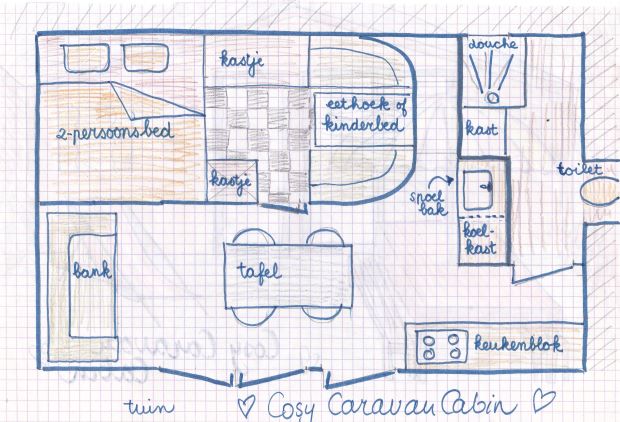 kastje
2-persoonsbed
kastje
eethoek of
kinderbed
douche
kast
toilet
spoel
bak
koel-
kast
bank
tafel
keukenblok
tuin
♡ Cosy Caravan Cabin ♡